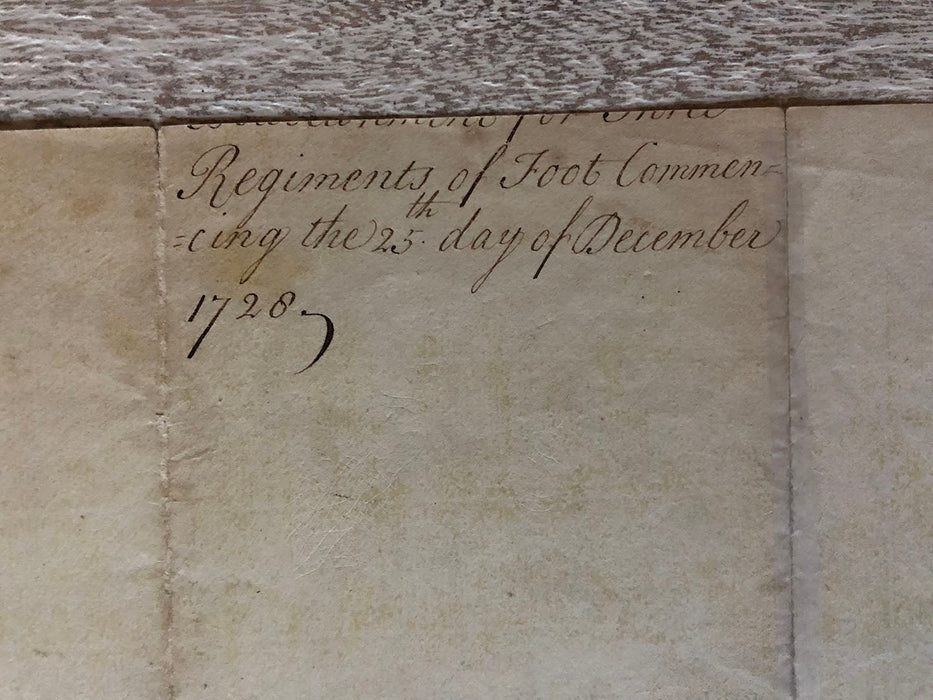 for Three
Regiments of Foot Commen=
=cing the 25th. day of December
1728